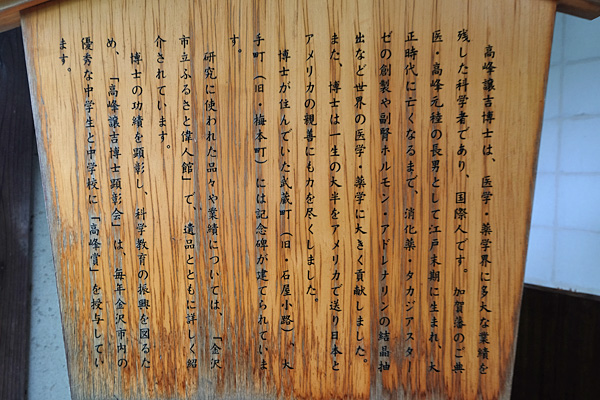 高峰譲吉博士は、医学・薬学界に多大な業績を
残した科学者であり、国際人です。加賀藩のご典
医・高峰元稑の長男として江戸末期に生まれ、大
正時代に亡くなるまで、消化薬・タカジアスター
ゼの創製や副腎ホルモン・アドレナリンの結晶抽
出など世界の医学・薬学に大きく貢献しました。
また、博士は一生の大半をアメリカで送り日本と
アメリカの親善にも力を尽くしました。
博士が住んでいた武蔵町（旧・石屋小路）、大
手町（旧・梅本町）には記念碑が建てられていま
す。
研究に使われた品々や業績については、「金沢
市立ふるさと偉人館」で、遺品とともに詳しく紹
介されています。
博士の功績を顕彰し、科学教育の振興を図るた
め、「高峰譲吉博士顕彰会」は、毎年金沢市内の
優秀な中学生と中学校に「高峰賞」を授与してい
ます。